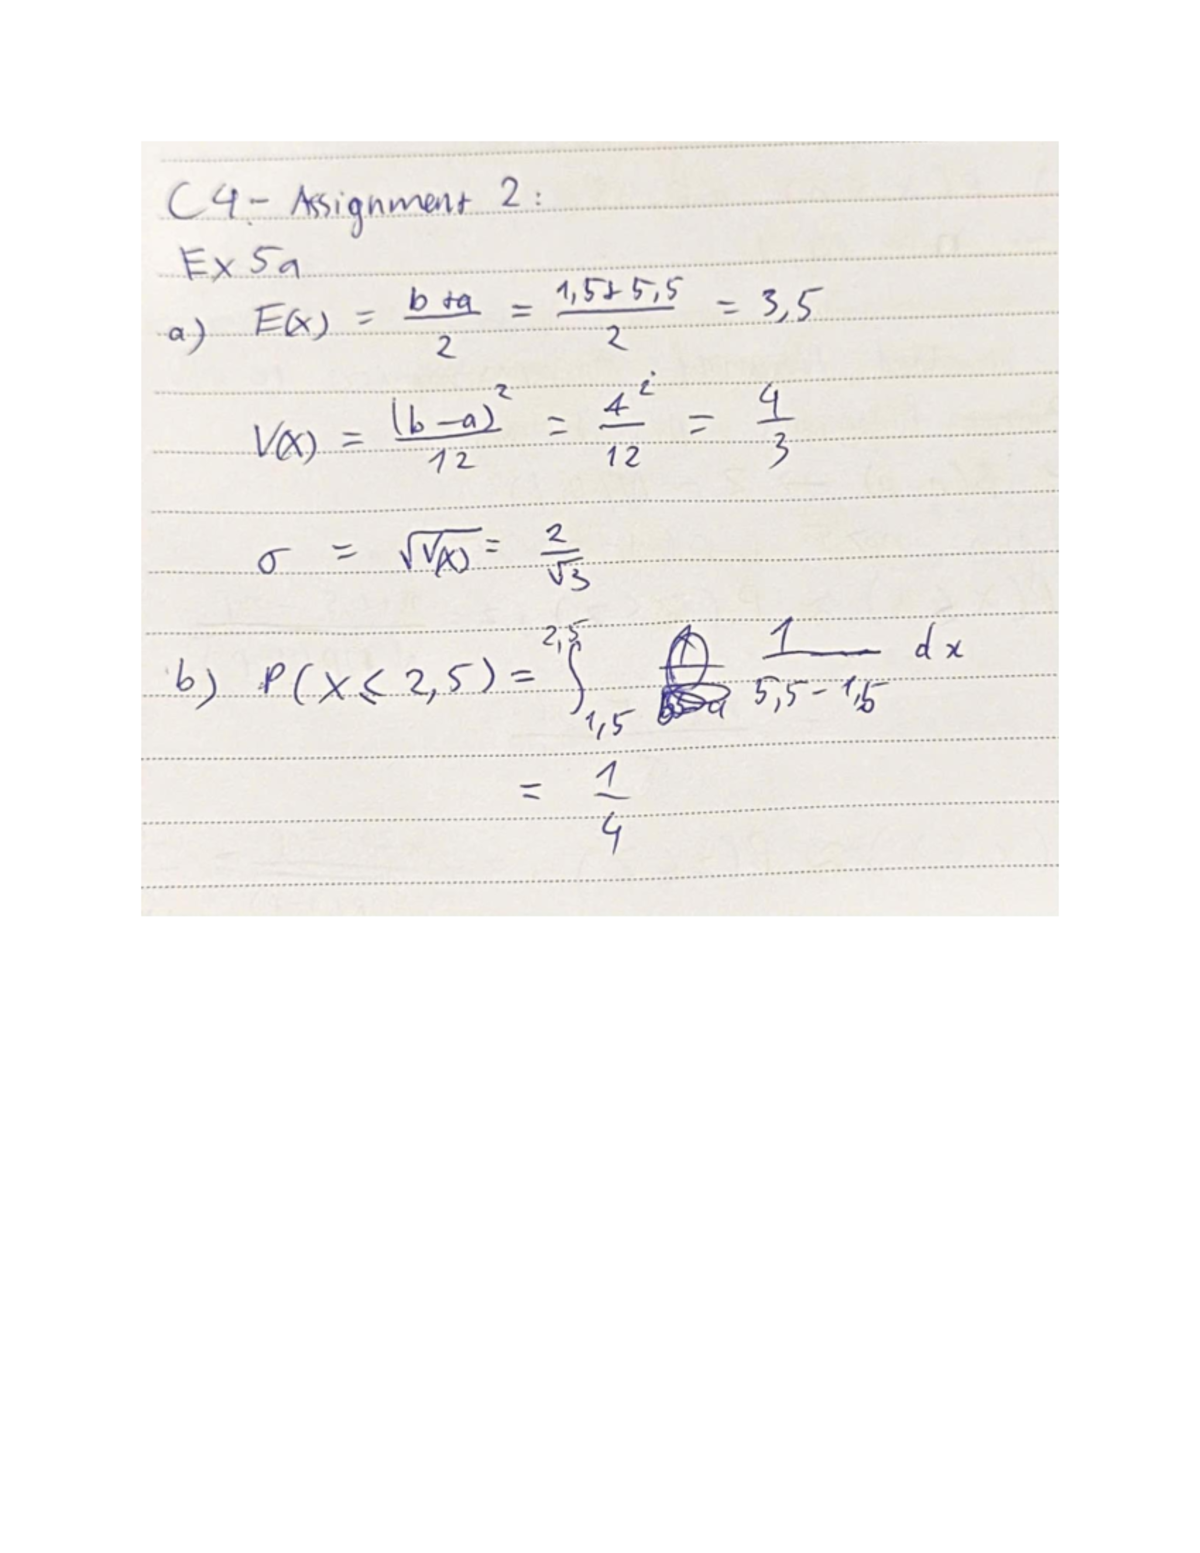 C4 - Assignment 2:
Ex 5a
a) E(X) = (b+a)/2 = (1,5+5,5)/2 = 3,5
V(X) = (b-a)²/12 = 4²/12 = 4/3
σ = √V(X) = 2/√3
b) P(X ≤ 2,5) = ∫_{1,5}^{2,5} 1/(5,5-1,5) dx
= 1/4